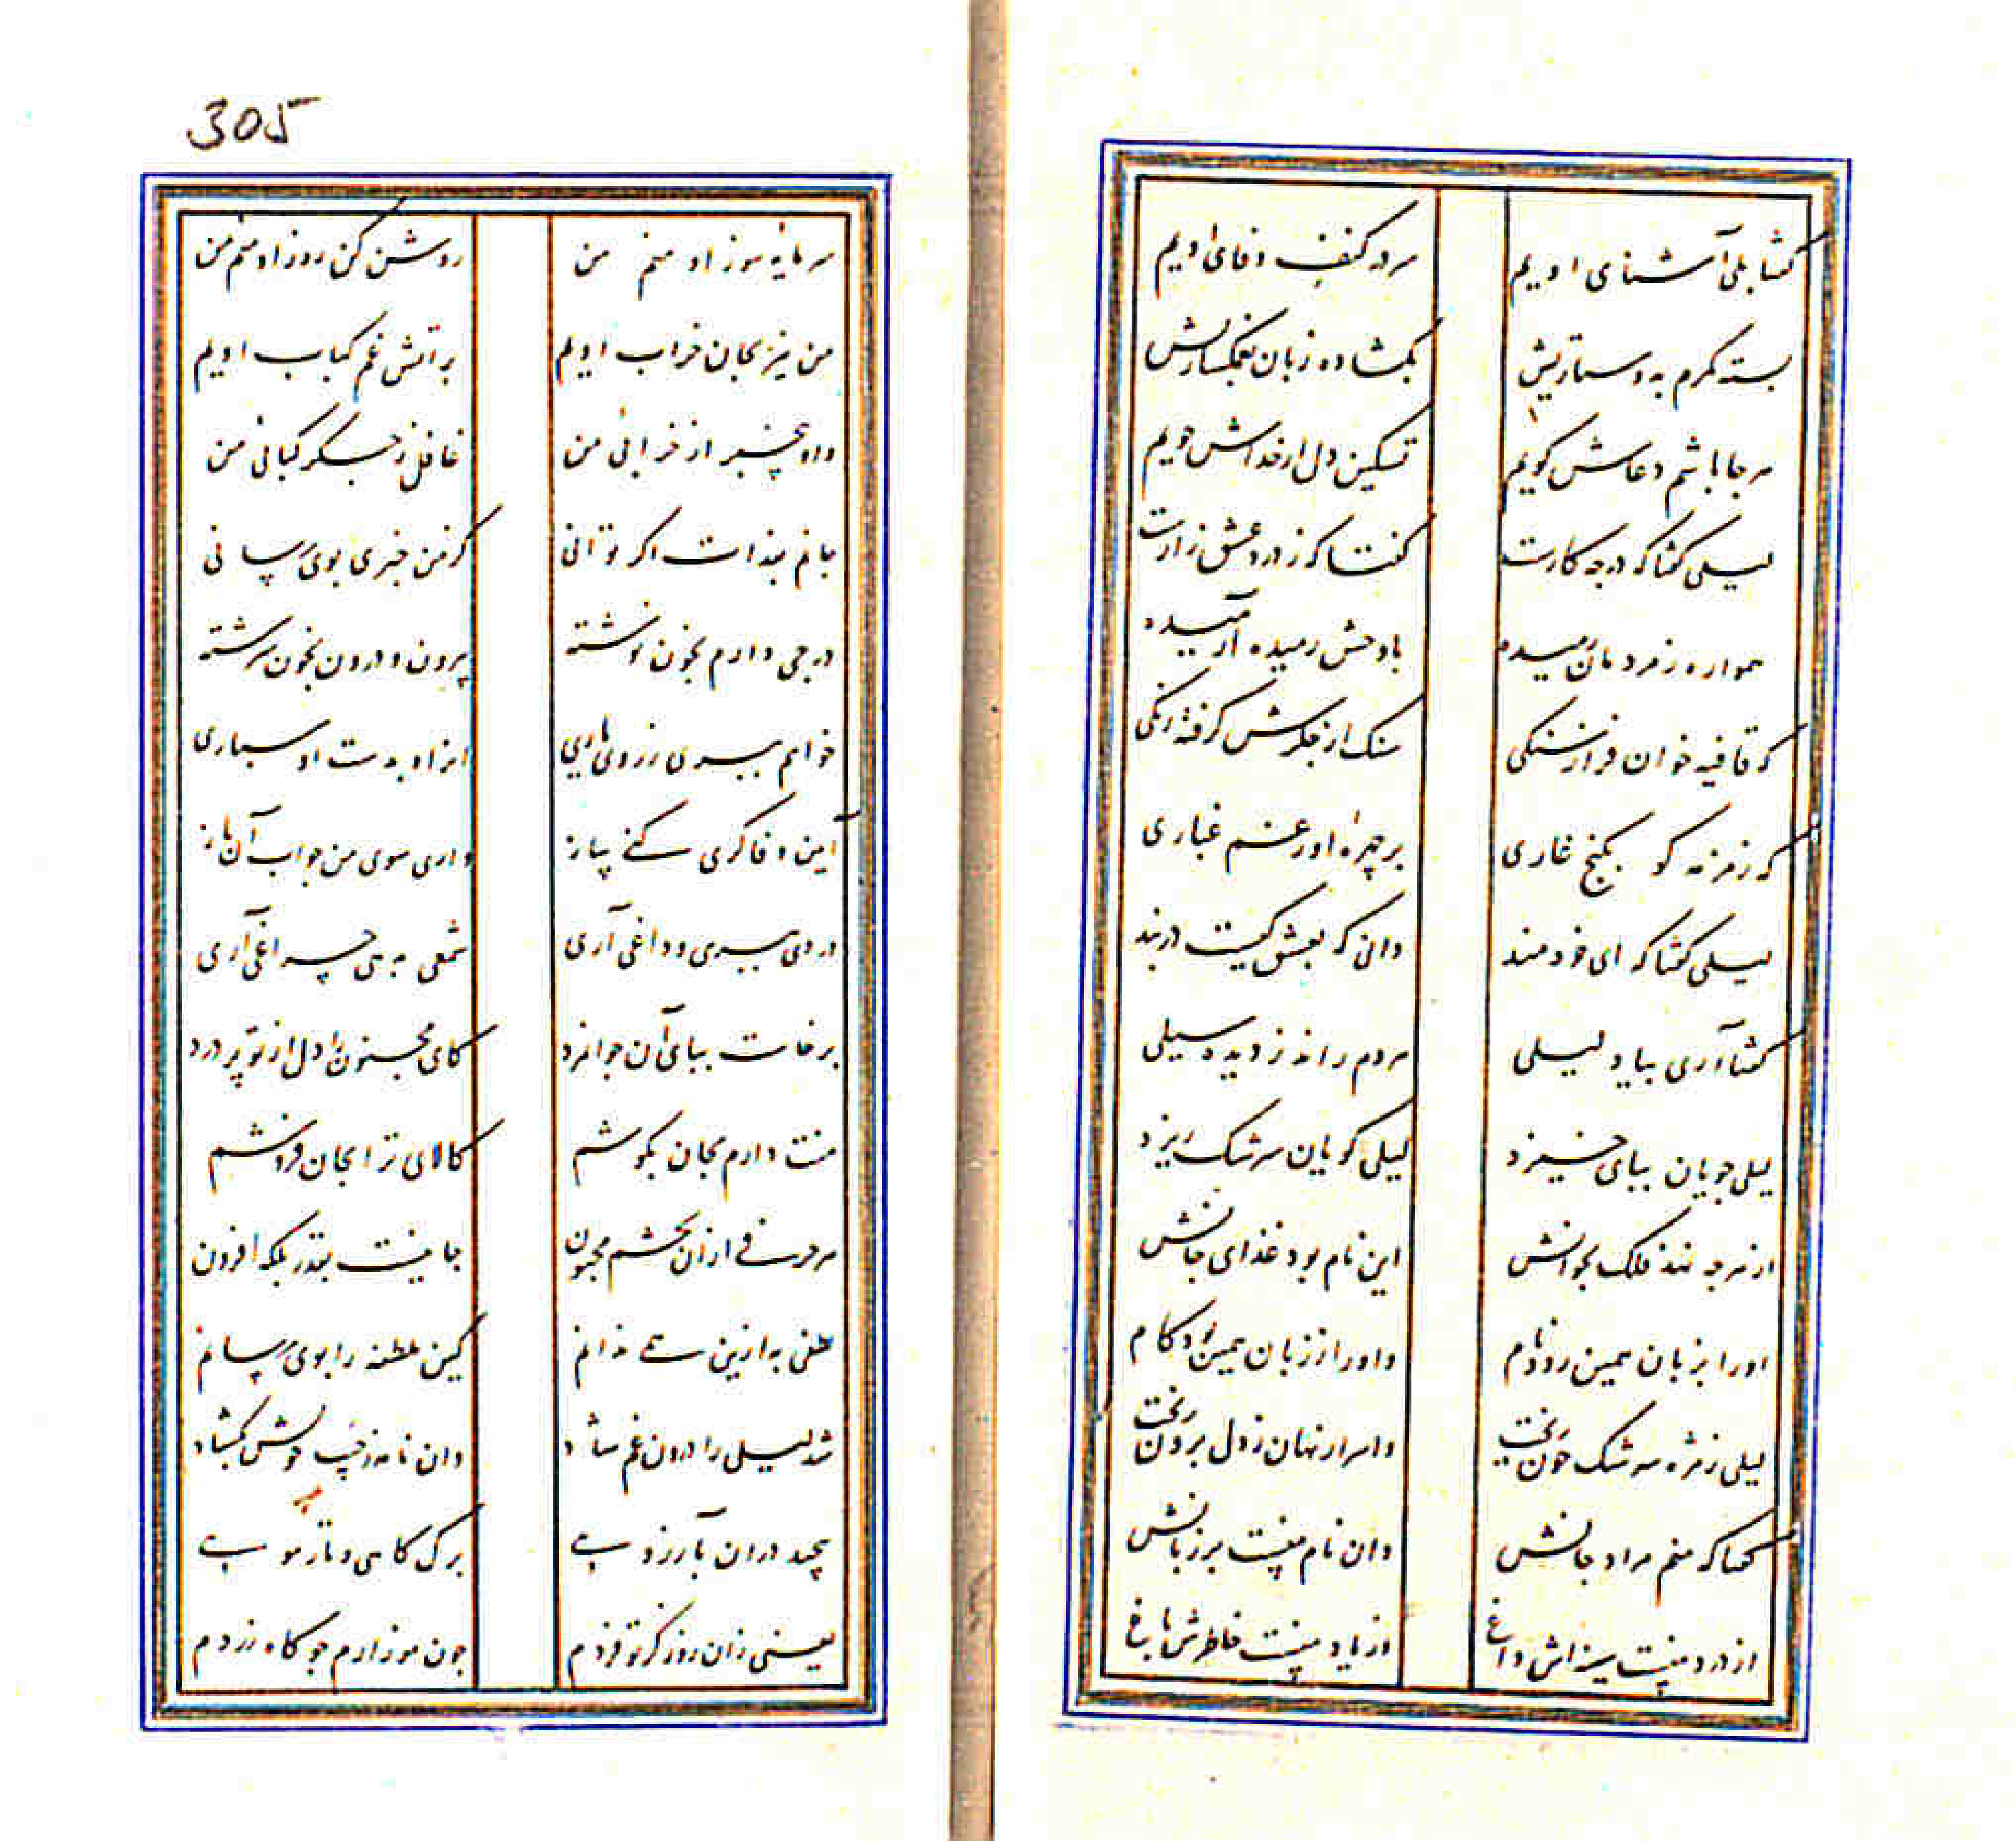 گفتا بلی آشنای اویم	سر در کنف وفای اویم
بسته کمرم به دوستاریش	بگشاده زبان بغمگساریش
هر جا باشم دعاش گویم	تسکین دل از خداش جویم
لیلی گفتا که در چه کارست	گفتا که ز درد عشق زارست
همواره ز مردمان رمیده	با وحش رمیده آرمیده
که قافیه خوان فراز سنگی	سنگ از جگرش گرفته رنگی
که زمزمه گو بکنج غاری	بر چهرهٔ او ز غم غباری
لیلی گفتا که ای خردمند	دانی که بعشق کیست در بند
گفتا آری بیاد لیلی	هر دم راند ز دیده سیلی
لیلی جویان بپای خیزد	لیلی گویان سرشک ریزد
از هر چه نهد فلک بخوانش	این نام بود غذای جانش
او را بزبان همین رود نام	و او را ز زبان همین بود کام
لیلی ز مژه سرشک خون ریخت	و اسرار نهان ز دل برون ریخت
گفتا که منم مراد جانش	وان نام منست بر زبانش
از درد منست سینه اش داغ	از یاد منست خاطرش باغ
305
سرمایهٔ سوز او منم من	روشن کن روز او منم من
من نیز بجان خراب اویم	بر آتش غم کباب اویم
و او بیخبر از خرابی من	غافل ز جگر کبابی من
جانم بفدات اگر توانی	کز من خبری بوی رسانی
درجی دارم بخون نوشته	بیرون و درون بخون سرشته
خواهم ببری ز روی یاری	او را بدست او سپاری
آیین وفاگری کنی ساز	و آری سوی من جواب آن باز
دردی ببری و داغی آری	شمعی بدهی چراغی آری
برخاست بپای آن جوانمرد	کای مجنون را دل از تو پر درد
منت دارم بجان بکوشم	کالای ترا بجان فروشم
هر حرفی از آن بچشم مجنون	جانیست بقدر بلکه افزون
لطفی به ازین همی ندانم	کین ملطفه را بوی رسانم
شد لیلی را درون غم شاد	وان نامه ز جیب خویش بگشاد
پیچید در آن بآرزویی	برگ کاهی و تار مویی
یعنی ز آن روز کز تو فردم	چون مو زارم چو کاه زردم